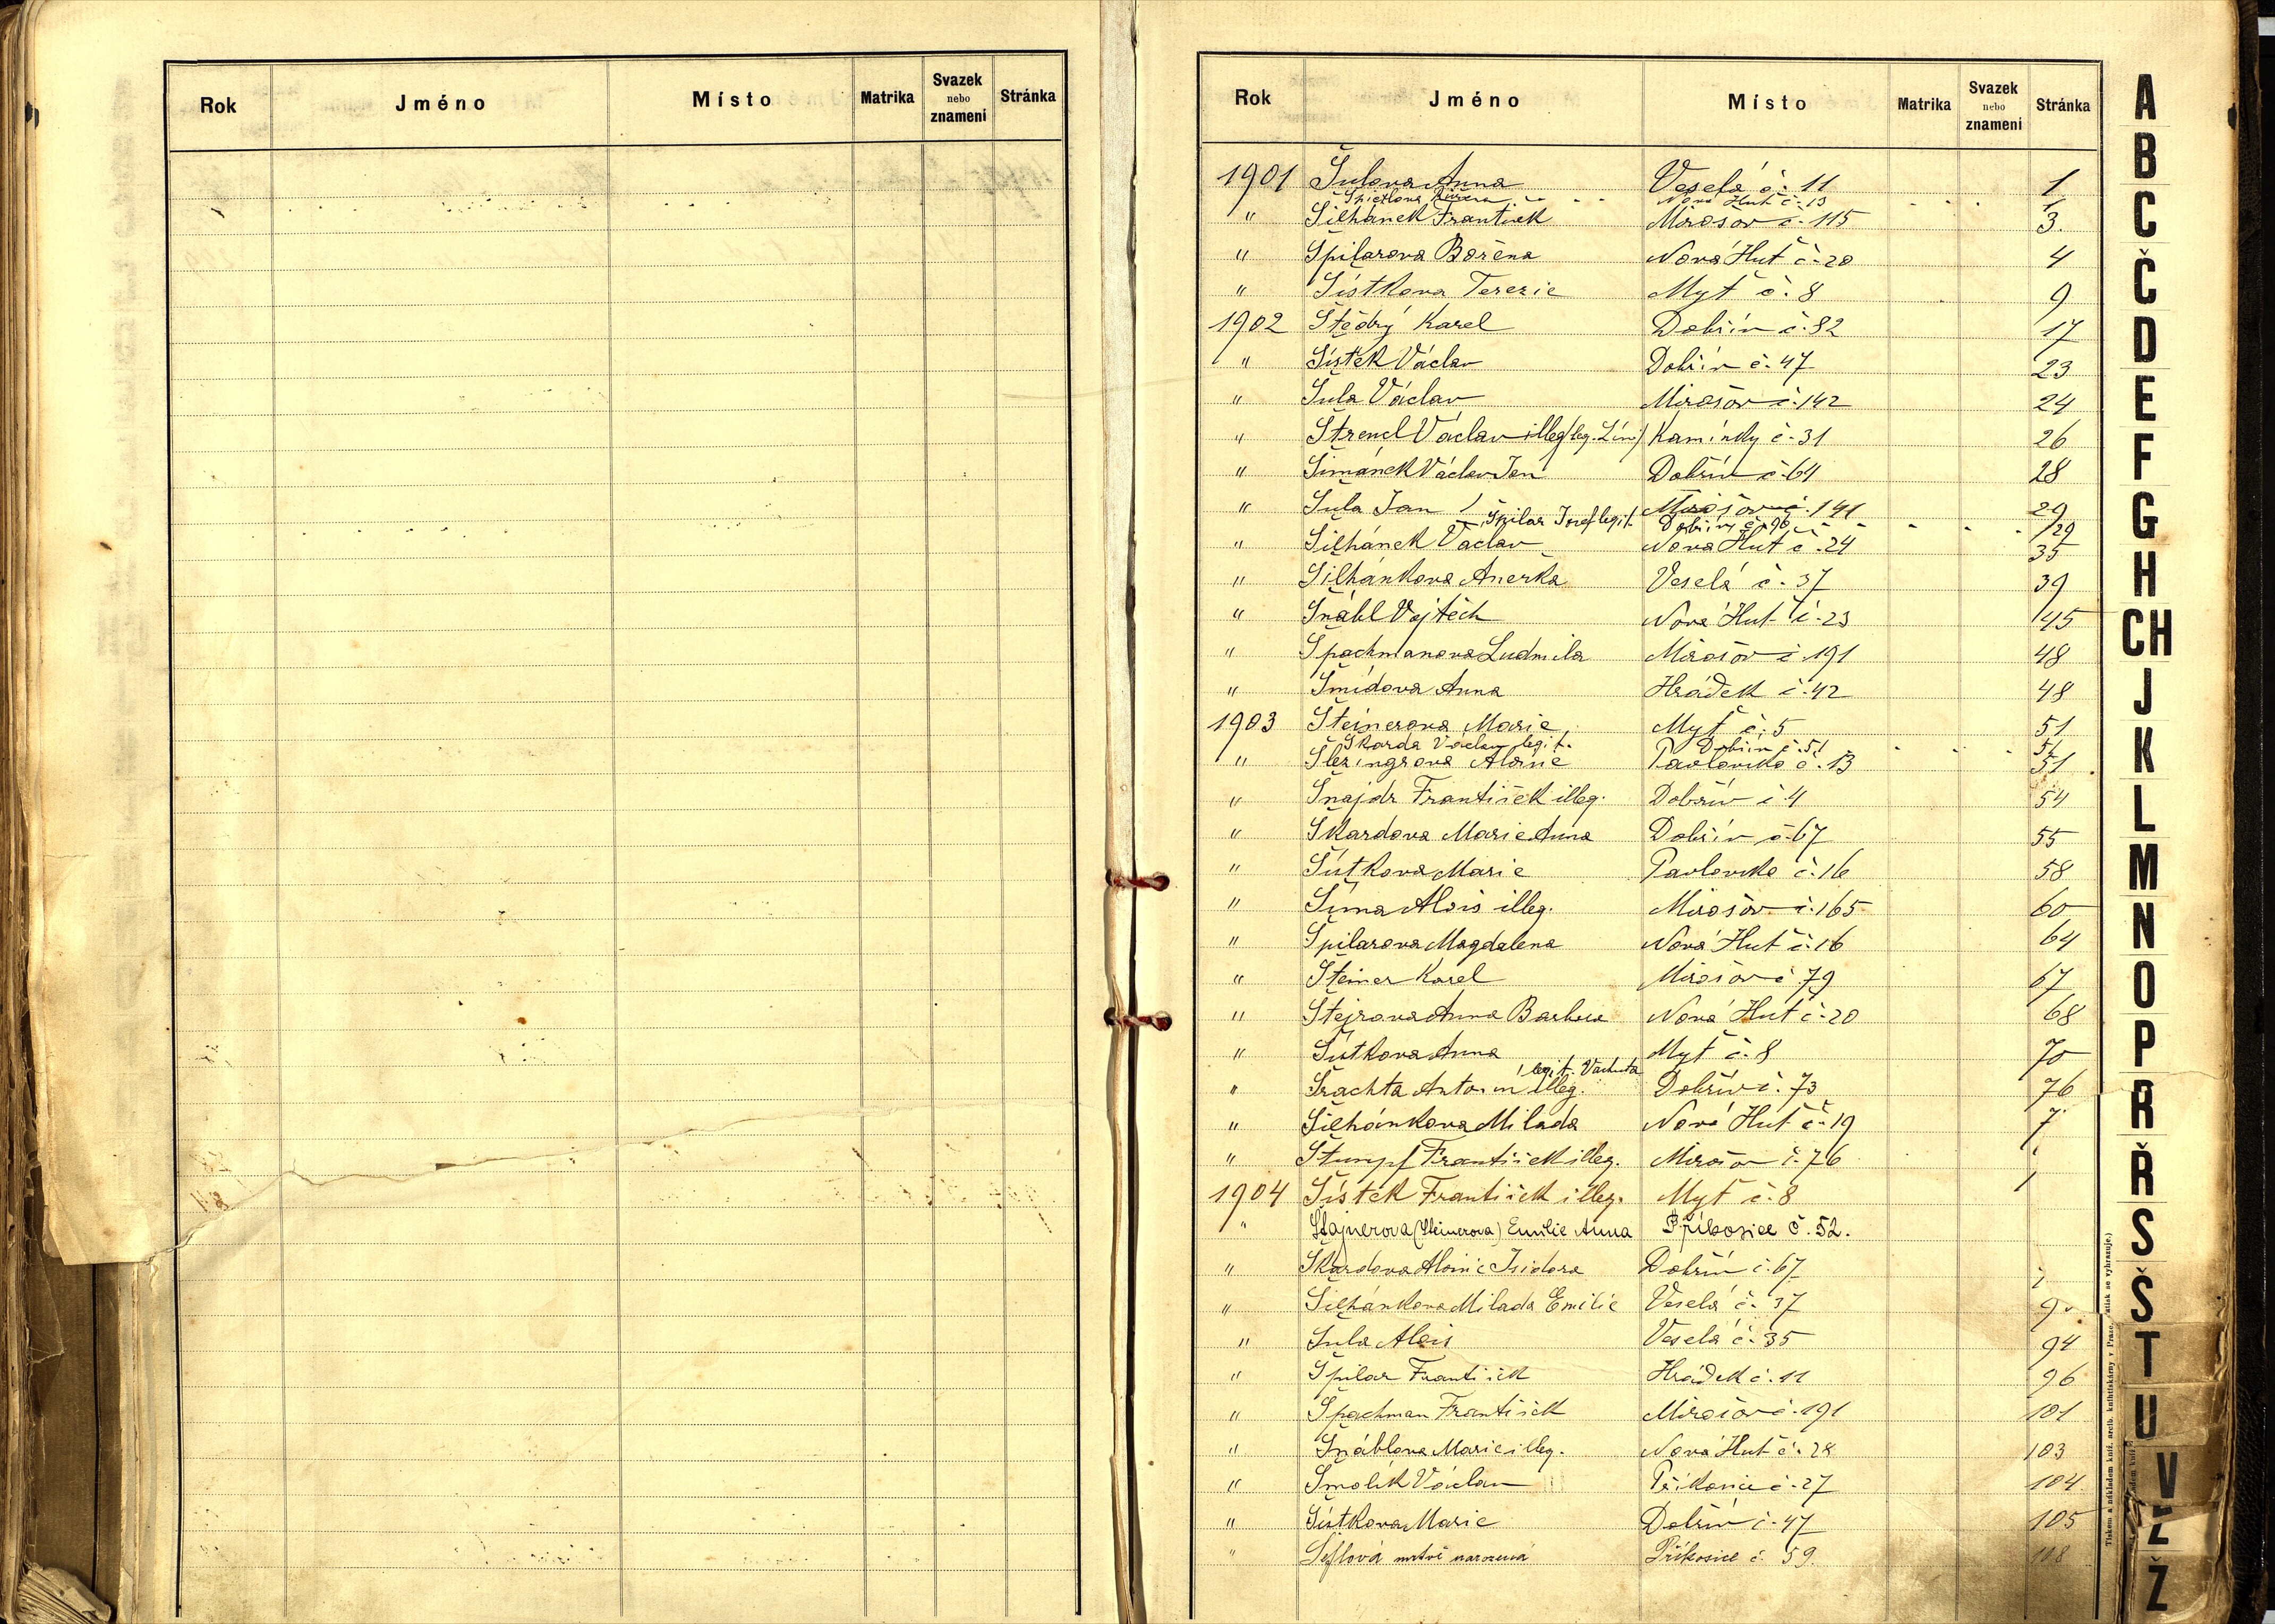 Rok Jméno Místo Matrika Svazek nebo znamení Stránka
Rok Jméno Místo Matrika Svazek nebo znamení Stránka
1901 Šulova Anna Veselá č. 11 1
Nová Huť č. 13
" Šilhánek František Mirošov č. 115 3.
" Špilarova Božena Nová Huť č. 20 4
" Šístkova Terezie Myť č. 8 9
1902 Štědrý Karel Dobřív č. 82 17
" Šístek Václav Dobřív č. 47 23
" Šula Václav Mirošov č. 142 24
" Štrencl Václav illeg. Kamínky č. 31 26
" Šimánek Václav Jan Dobřív č. 64 28
" Šula Jan Mirošov č. 141 29
Špilar Josef legit. Dobřív č. 96 29
" Šilhánek Václav Nová Huť č. 24 35
" Šilhánkova Anežka Veselá č. 37 39
" Šnábl Vojtěch Nová Huť č. 23 45
" Špachmanova Ludmila Mirošov č. 191 48
" Šmídova Anna Hrádek č. 42 48
1903 Šteinerova Marie Myť č. 5 51
Škarda Václav legit. Dobřív č. 51 51
" Šlezingrova Aloisie Pavlovsko č. 13 51
" Šnajdr František illeg. Dobřív č. 4 54
" Škardova Marie Anna Dobřív č. 67 55
" Šístkova Marie Pavlovsko č. 16 58
" Šíma Alois illeg. Mirošov č. 165 60
" Špilarova Magdalena Nová Huť č. 16 64
" Šteiner Karel Mirošov č. 79 67
" Štejrova Anna Barbora Nová Huť č. 20 68
" Šístkova Anna Myť č. 8 70
legit. Vachuta
" Šrachta Antonín illeg. Dobřív č. 73 76
" Šilhánkova Milada Nová Huť č. 19 7
" Štumpf František illeg. Mirošov č. 76
1904 Šístek František illeg. Myť č. 8
" Štajnerova (Šteinerova) Emilie Anna Příkosice č. 52.
" Škardova Aloisie Isidora Dobřív č. 67
" Šilhánkova Milada Emilie Veselá č. 37 9
" Šula Alois Veselá č. 35 94
" Špilar František Hrádek č. 11 96
" Špachman František Mirošov č. 191 101
" Šnáblova Marie illeg. Nová Huť č. 28 103
" Šmolík Václav Příkosice č. 27 104
" Šístkova Marie Dobřív č. 47 105
" Šeflová mrtvě narozená Příkosice č. 59. 108
A
B
C
Č
D
E
F
G
H
CH
J
K
L
M
N
O
P
R
Ř
S
Š
T
U
V
Z
Ž